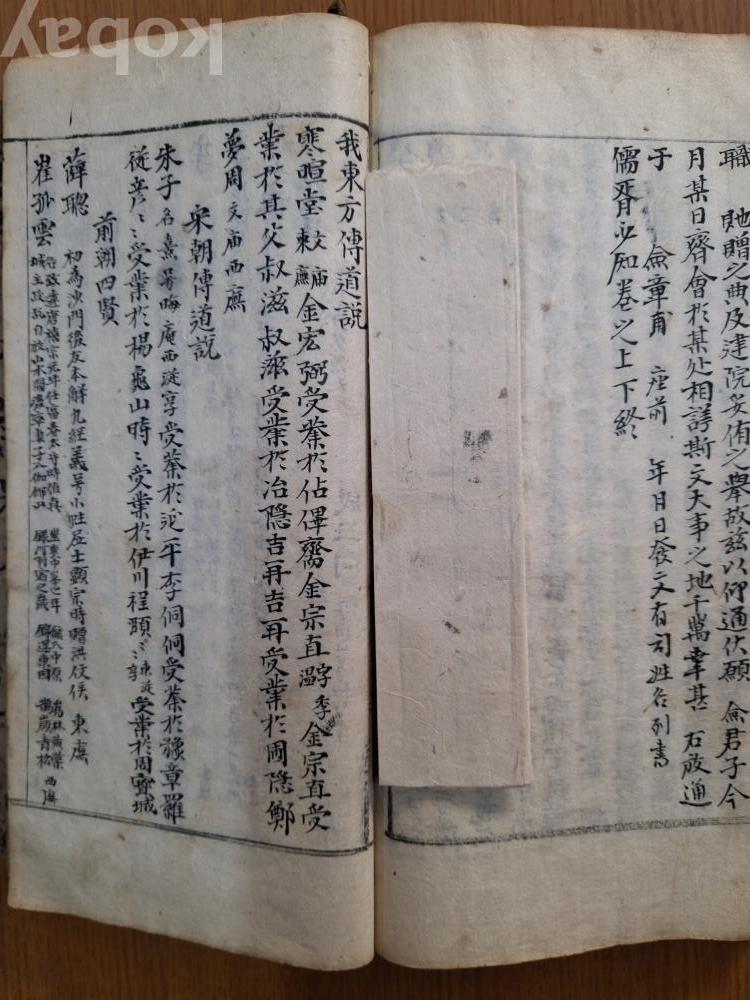 職 貤贈之典及建院妥侑之舉故玆以仰通伏願 僉君子今
月某日齊會於某处相議斯文大事之地千萬幸甚 右敬通
于 僉章甫 座前 年月日發文有司姓名列書
儒胥必知卷之上下終
我東方傳道說
寒暄堂 東庙 金宏弼受業於佔俾齋金宗直 字季 金宗直受
業於其父叔滋叔滋受業於冶隐吉再吉再受業於圃隐鄭
夢周 文庙西廡
宋朝傳道說
朱子 名熹号晦庵西從享 受業於延平李侗侗受業於豫章羅
從彦〻受業於楊龜山時〻受業於伊川程頤〻 受業於周
前朝四賢
薛聰 初為沙門復反本解九經義号小性居士顯宗時贈洪侫 東廡
崔孤雲
kobay